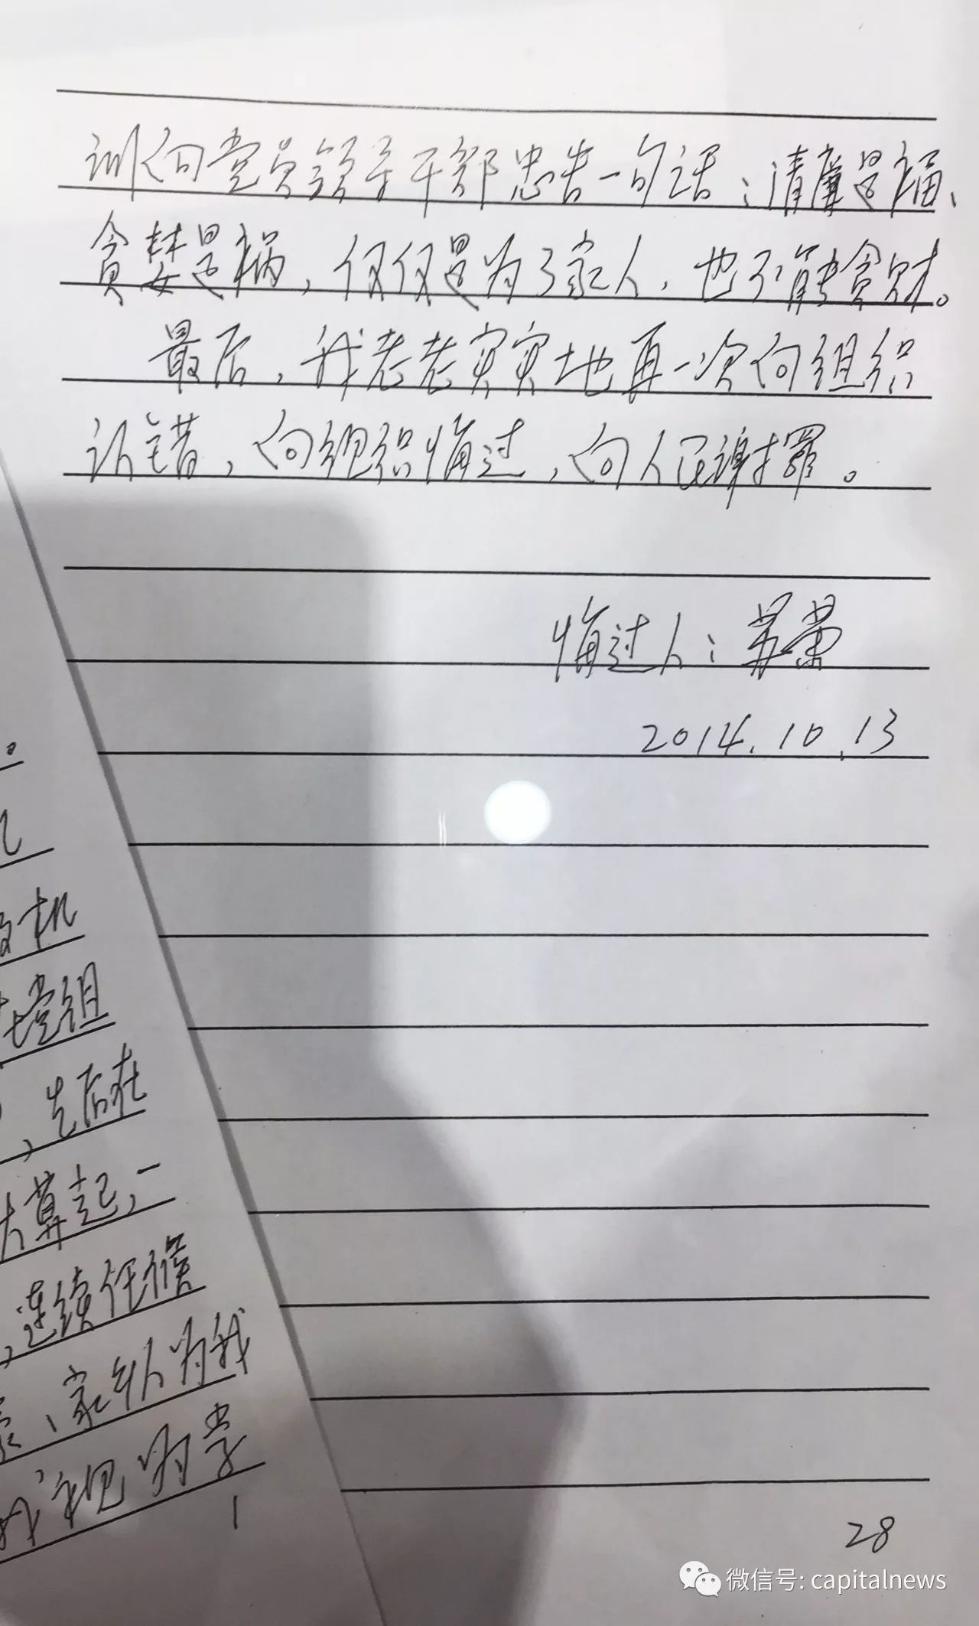 训向党员领导干部忠告一句话：清廉是福、
贪婪是祸，仅仅是为了家人，也不能贪财。
最后，我老老实实地再一次向组织
认错，向组织悔过，向人民谢罪。
悔过人：苏荣
2014.10.13
28
机
党组
，先后在
算起，一
，连续任
、家人为我
我视为
1
微信号: capitalnews